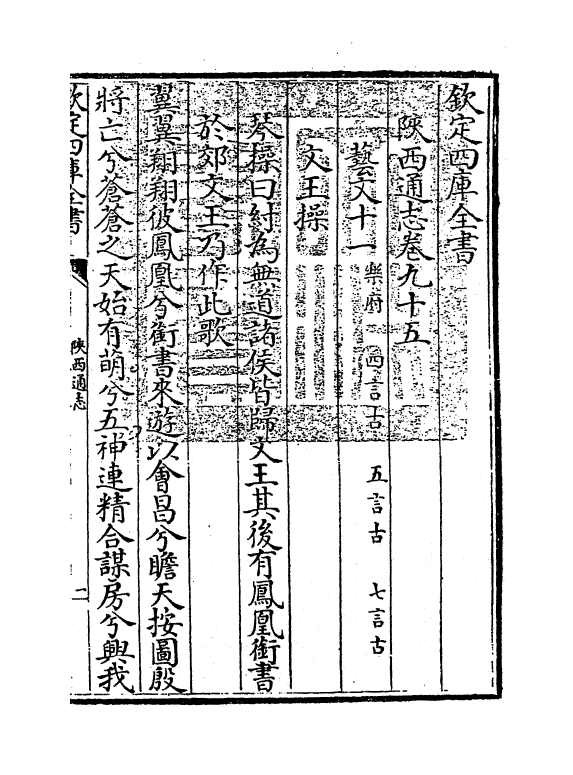 欽定四庫全書
陝西通志卷九十五
藝文十一 樂府 四言古 五言古 七言古
文王操
琴操曰紂為無道諸侯皆歸文王其後有鳳凰銜書
於郊文王乃作此歌
翼翼翔翔彼鳳凰兮銜書來遊以會昌兮瞻天按圖殷
將亡兮蒼蒼之天始有萌兮五神連精合謀房兮興我
欽定四庫全書
陝西通志